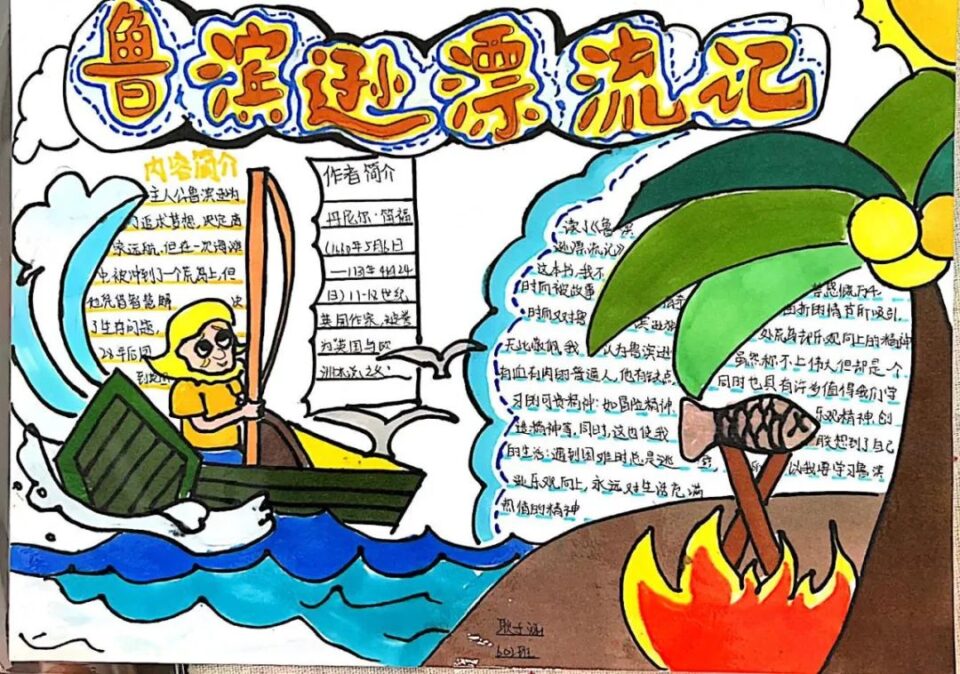 鲁滨逊漂流记
内容简介
主人公鲁滨逊为
了追求梦想,决定离
家远航.但在一次海难
中被冲到了一个荒岛上,但
他凭借智慧解 决
了生存问题,
28年后回
到
作者简介
丹尼尔·笛福
(1660年5月6日
4月24
日)17-18世纪
英国作家,被誉
为英国与欧
洲小说之父.
读了《鲁滨
逊漂流记》
这本书,我不
时而被故事 曲折的情节所吸引,
时而又对鲁滨逊 处荒岛却乐观向上的精神
无比敬佩.我 认为鲁滨逊 虽然称不上伟大,但却是一个
有血有肉的普通人,他有缺点, 同时也具有许多值得我们学
习的可贵精神:如冒险精神, 乐观精神,创
造精神等,同时,这也使我 想到了自己
的生活:遇到困难时总是逃 以我要学习鲁滨
逊乐观向上,永远对生活充满
热值的精神
耿子涵
602班